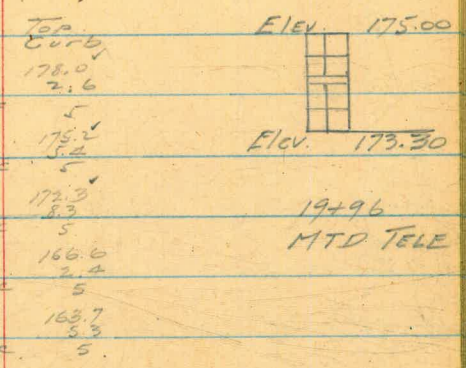 Top
Curb
178.0 ✓
2.6
5
175.2 ✓
5.4
5
172.3 ✓
8.3
5
166.6
2.4
5
163.7
5.3
5
Elev. 175.00
Elev. 173.30
19+96
MTD TELE